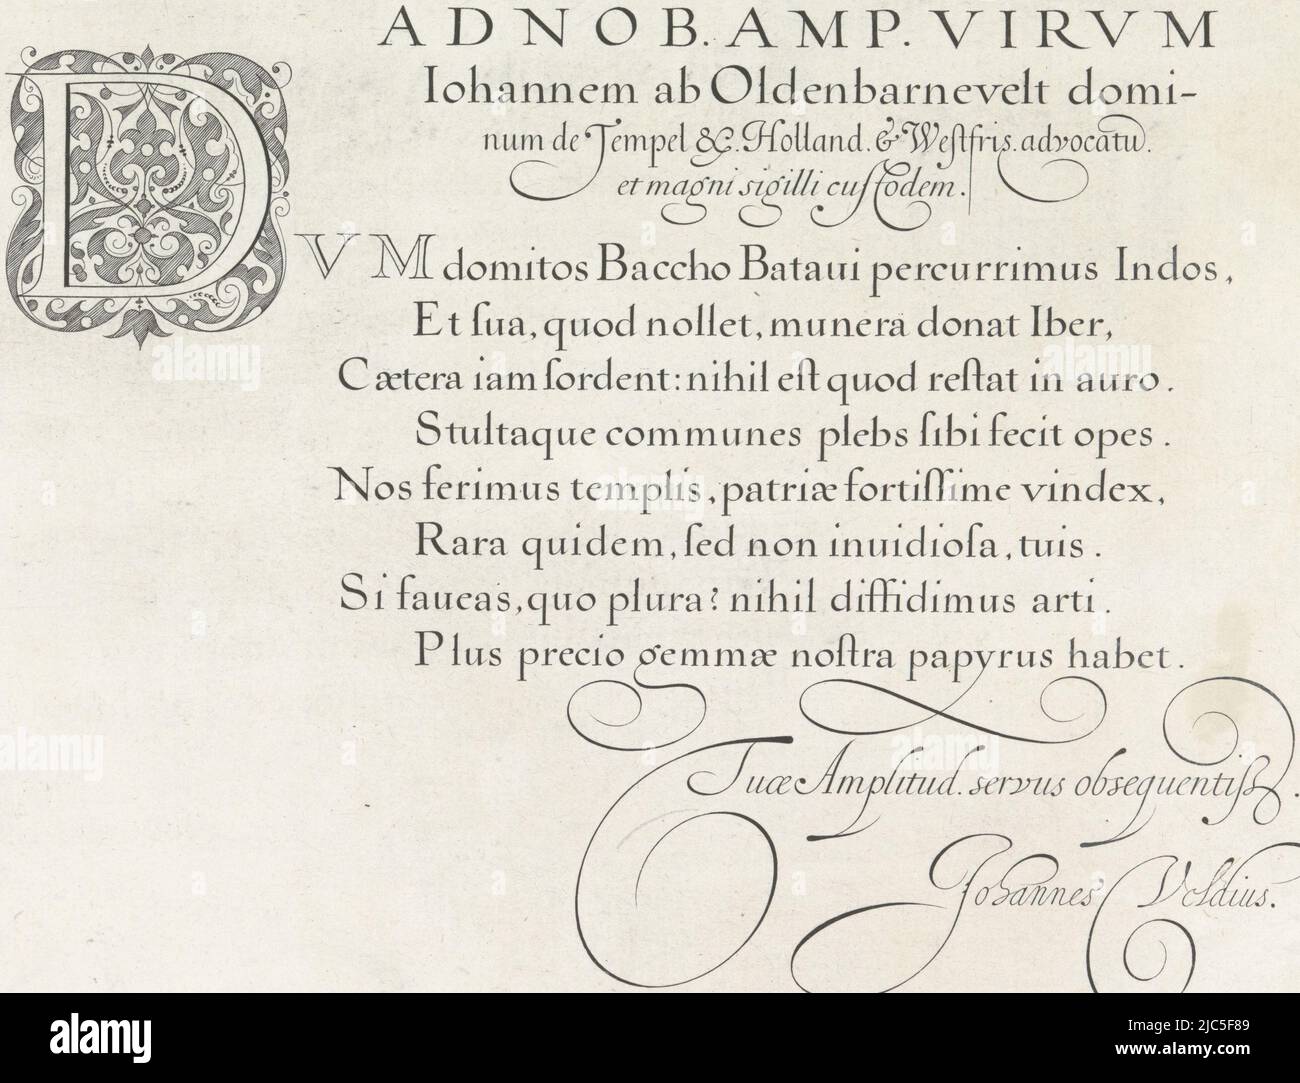 AD NOB. AMP. VIRVM
Iohannem ab Oldenbarnevelt domi-
num de Tempel &c. Holland. & Westfris. advocatū.
et magni sigilli custodem.
DVM domitos Baccho Bataui percurrimus Indos,
Et ſua, quod nollet, munera donat Iber,
Cætera iam ſordent: nihil eſt quod reſtat in auro.
Stultaque communes plebs ſibi fecit opes.
Nos ferimus templis, patriæ fortiſſime vindex,
Rara quidem, ſed non inuidioſa, tuis.
Si faueas, quo plura? nihil diffidimus arti.
Plus precio gemmæ noſtra papyrus habet.
Tuæ Amplitud. servus obsequentiſs.
Johannes Veldius.
alamy
Image ID: 2JC5F89
www.alamy.com